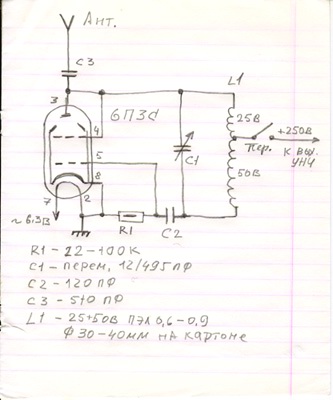 Ант.
C3
L1
3
6П3С
4
25В
+250В
Пер.
К вых.
УНЧ
5
C1
50В
8
7
2
~6.3В
R1
C2
R1 - 22-100К
C1 - перем, 12/495 ПФ
C2 - 120 ПФ
C3 - 510 ПФ
L1 - 25+50В ПЭЛ 0,6-0,9
Ф 30-40мм на картоне